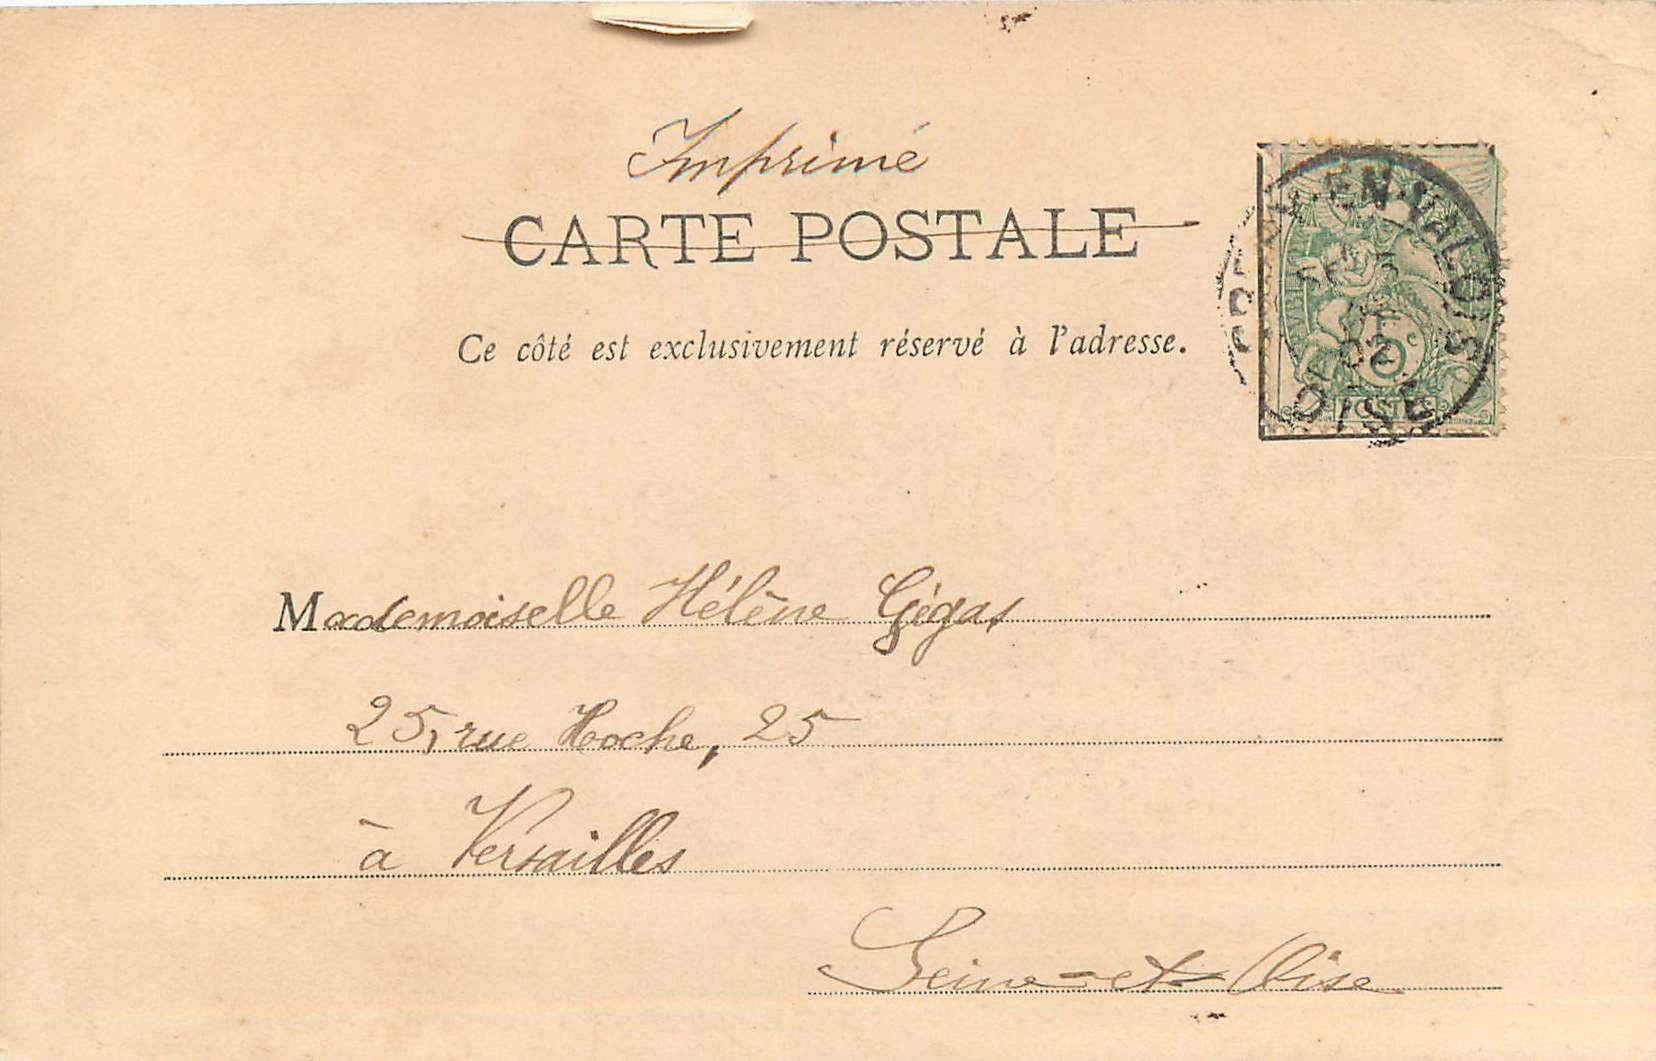 Imprimé
CARTE POSTALE
Ce côté est exclusivement réservé à l'adresse.
CRÉPY-EN-VALOIS
5
SE
02
OISE
5c
POSTES
Mademoiselle Hélène Gégas
25, rue Hoche, 25
à Versailles
Seine-et-Oise